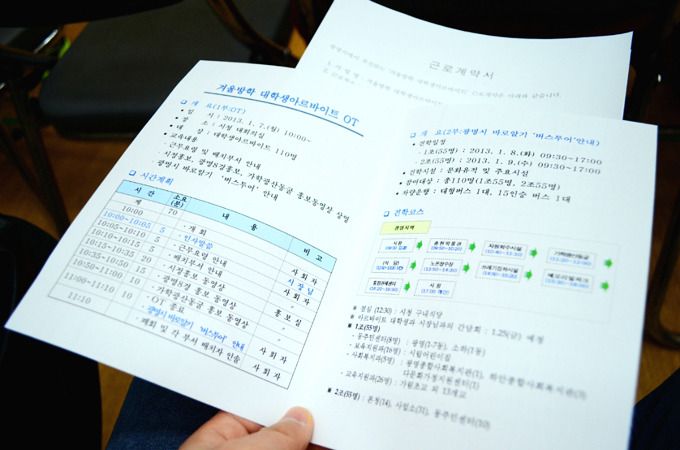 근로계약서
겨울방학 대학생아르바이트 OT
❏ 개 요(1부:OT)
• 일 시 : 2013. 1. 7.(월) 10:00~
• 장 소 : 시청 대회의실
• 대 상 : 대학생아르바이트 110명
• 교육내용
· 근무요령 및 배치부서 안내
· 시정홍보, 광명8경홍보, 가학광산동굴 홍보동영상 상영
· 광명시 바로알기 '버스투어' 안내
❏ 시간계획
시 간 소요(분) 내 용 비 고
계 70
10:00 · 개 회 사회자
10:00~10:05 5 · 인사말씀 시장님
10:05~10:10 5 · 근무요령 안내 사회자
10:10~10:15 5 · 배치부서 안내 〃
10:15~10:35 20 · 시정홍보 동영상 홍보실
10:35~10:50 15 · 광명8경 홍보 동영상 〃
10:50~11:00 10 · 가학광산동굴 홍보 동영상 〃
· OT 종료 사회자
11:00~11:10 10 · 광명시 바로알기 '버스투어' 안내 〃
11:10 · 폐회 및 각 부서 배치자 인솔 사회자
❏ 개 요(2부:광명시 바로알기 '버스투어'안내)
• 견학일정
· 1조(55명) : 2013. 1. 8.(화) 09:30~17:00
· 2조(55명) : 2013. 1. 9.(수) 09:30~17:00
• 견학시설 : 문화유적 및 주요시설
• 참여대상 : 총110명(1조55명, 2조55명)
• 차량운행 : 대형버스 1대, 15인승 버스 1대
❏ 견학코스
시청
충현박물관
자원회수시설
가학광산동굴
(식 당)
노온정수장
시 청
※ 점심 (12:30) : 시청 구내식당
※ 아르바이트 대학생과 시장님과의 간담회 : 1.25(금) 예정
※ 1조(55명)
· 동주민센터(8명) : 광명(1-7동), 소하(1동)
· 교육지원과(16명) : 시립어린이집
· 사회복지과(5명) : 광명종합사회복지관(1), 하안종합사회복지관(3)
다문화가정지원센터(1)
· 교육지원과(26명) : 가림초교 외 13개교
※ 2조(55명) : 본청(14), 사업소(31), 동주민센터(10)